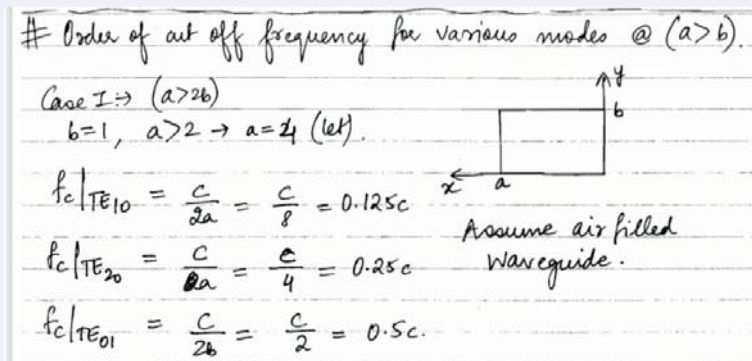 # Order of cut off frequency for various modes @ (a>b).
Case I:→ (a>2b)
b=1, a>2 → a=4 (let).
y
b
x
a
fc|TE10 = c/2a = c/8 = 0.125c
Assume air filled
waveguide.
fc|TE20 = c/a = c/4 = 0.25c
fc|TE01 = c/2b = c/2 = 0.5c.